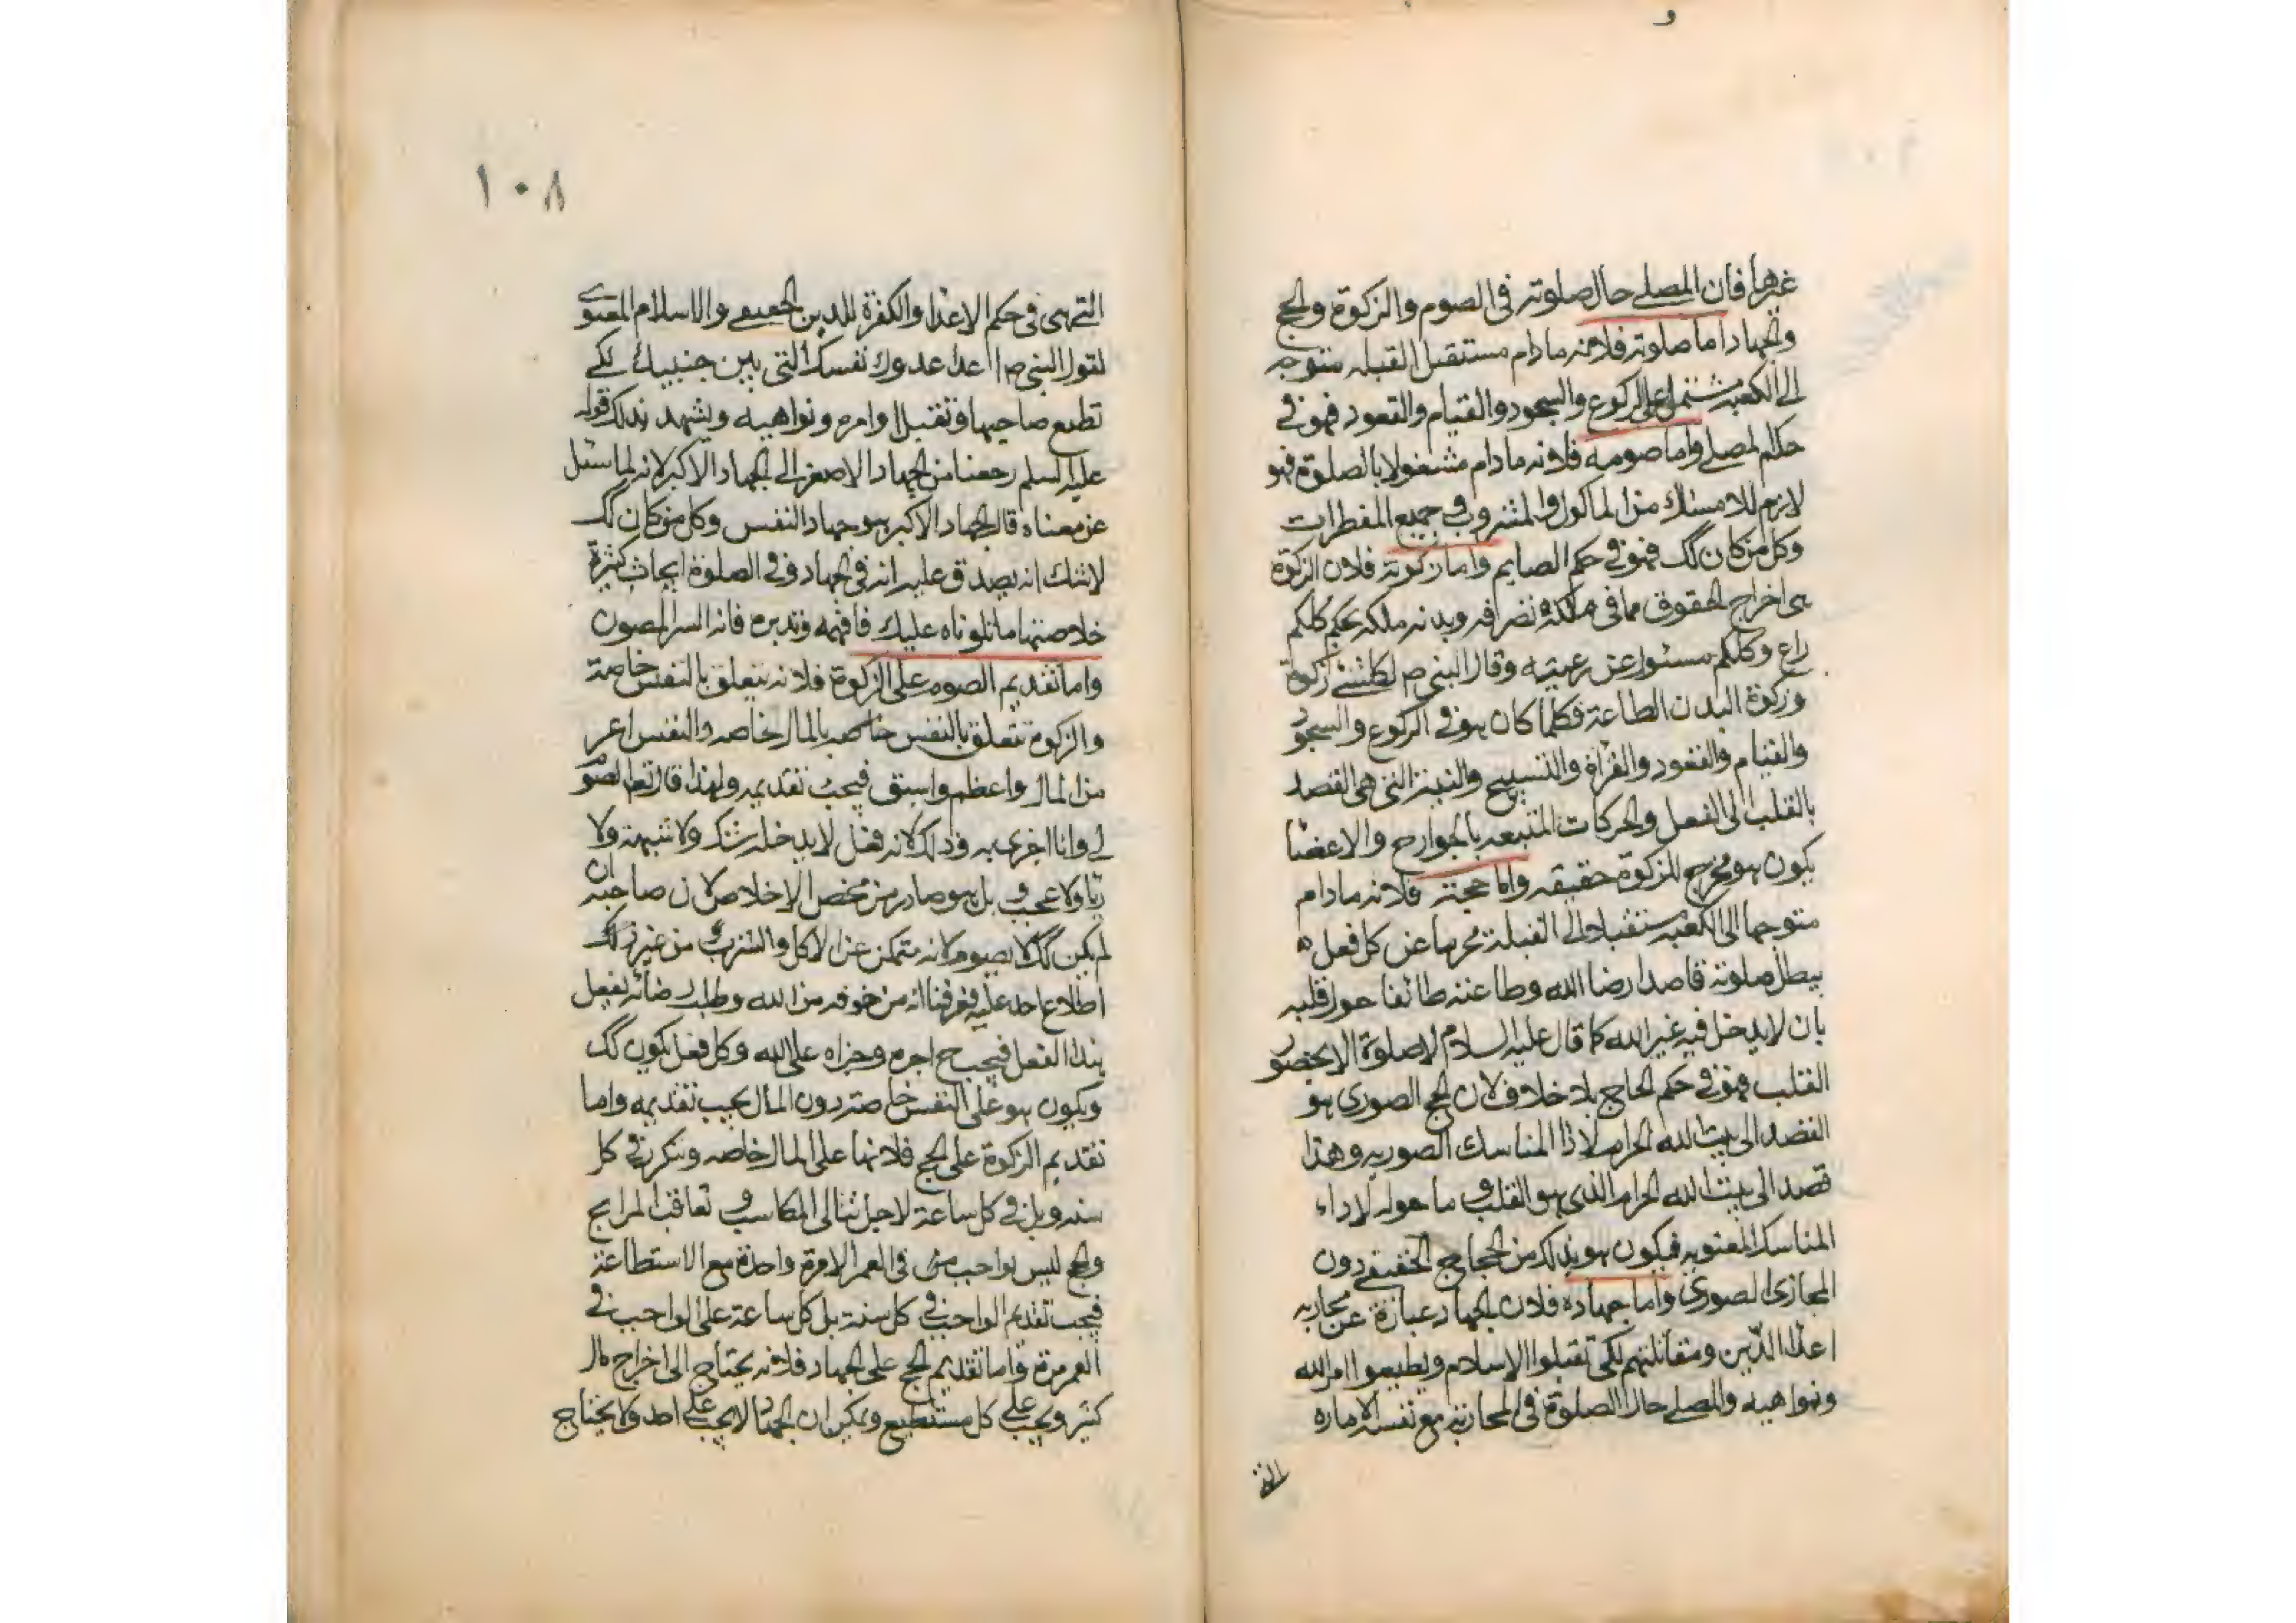 غيرها فان المصلے حال صلوته في الصوم والزكوة والحج
والجهاد اما صلوته فلانه مادام مستقبل القبله متوجه
الى الكعبه مشتمل على الركوع والسجود والقيام والقعود فهو في
حكم المصلے واما صومه فلانه مادام مشغولا بالصلوة فهو
لازم للامساك من الماكول والمشروب و جميع المفطرات
وكل من كان كك فهو في حكم الصايم واما زكوته فلان الزكوة
هى اخراج الحقوق مما في ملكه تصرافه وبدنه ملكه بحكم كلكم
راع وكلكم مسئول عن رعيته وقال النبي ص لكل شئ زكوة
وزكوة البدن الطاعة فكلما كان هو في الركوع والسجود
والقيام والقعود والقراة والتسبيح والنية التي هى القصد
بالقلب الى الفعل والحركات المتبعه بالجوارح والاعضا
يكون هو مخرج للزكوة حقيقه واما حجته فلانه مادام
متوجها الى الكعبه مستقبلا الى القبلة محرما عن كل فعل
يبطل صلوته قاصدا رضا الله وطاعته طائفا حول قلبه
بان لا يدخل فيه غير الله كما قال عليه السلام لا صلوة الا بحضور
القلب فهو في حكم الحاج بلا خلاف لان الحج الصورى هو
القصد الى بيت الله الحرام لاذا المناسك الصوريه وهذا
قصد الى بيت الله الحرام الذى هو القلب و ما هو له لاداء
المناسك المعنويه فيكون هو بذلك من الحجاج الحقيقے دون
المجازى الصورى واما جهاده فلان الجهاد عبارة عن محاربه
اعدا الدّين ومقاتلتهم لكى تقبلوا الاسلام ويطيعوا امر الله
ونواهيه والمصلے حال الصلوة في المحاربة مع نفسه الاماره
التى
١٠٨
التى هى في حكم الاعدا والكفرة للدين الحقيقے والاسلام المعنوى
لقول النبي ص اعدا عدوك نفسك التى بين جنبيك لكے
تطيع صاحبها وتقبل اوامره ونواهيه ويشهد بذلك قوله
عليه السلم رجعنا من الجهاد الاصغر الى الجهاد الاكبر لانه لما سئل
عن معناه قال الجهاد الاكبر هو جهاد النفس وكل من كان كك
لا شك انه يصدق عليه انه في الجهاد و في الصلوة ابحاث كثيرة
خلاصتها ما تلوناه عليك فافهمه وتدبره فانه السر المصون
واما تقديم الصوم على الزكوة فلانه يتعلق بالنفس خاصة
والزكوة تتعلق بالنفس خاصه بالمال خاصه والنفس اعز
من المال واعظم واسبق فيجب تقديمه ولهذا قال تعا الصوم
لى وانا اجزى به وذلك لانه فعل لا يدخله شك ولا شبهة ولا
ريا ولا عجب و بل هو صادر من محض الاخلاص لان صاحبه ان
لم يكن كك لا يصوم لانه متمكن عن الاكل والشرب و من غير ذلك
اطلاع احد عليه فعرفنا انه من خوفه من الله وطلب رضائه يفعل
هذا الفعل فيجب ح اجره وجزاه على الله وكل فعل يكون كك
ويكون هو على النفس خاصة دون المال يجب تقديمه واما
تقديم الزكوة على الحج فلانها على المال خاصه وتتكرر في كل
سنه وبل في كل ساعة لاجل تتالى المكاسب و تعاقب المرابح
والحج ليس بواجب في العمر الا مرة واحدة مع الاستطاعة
فيجب تقديم الواجب في كل سنة بل كل ساعة على الواجب في
العمر مرة واما تقديم الحج على الجهاد فلانه يحتاج الى اخراج مال
كثير ويجب على كل مستطيع ويمكن ان الجهاد لا يجب على احد ولا يحتاج